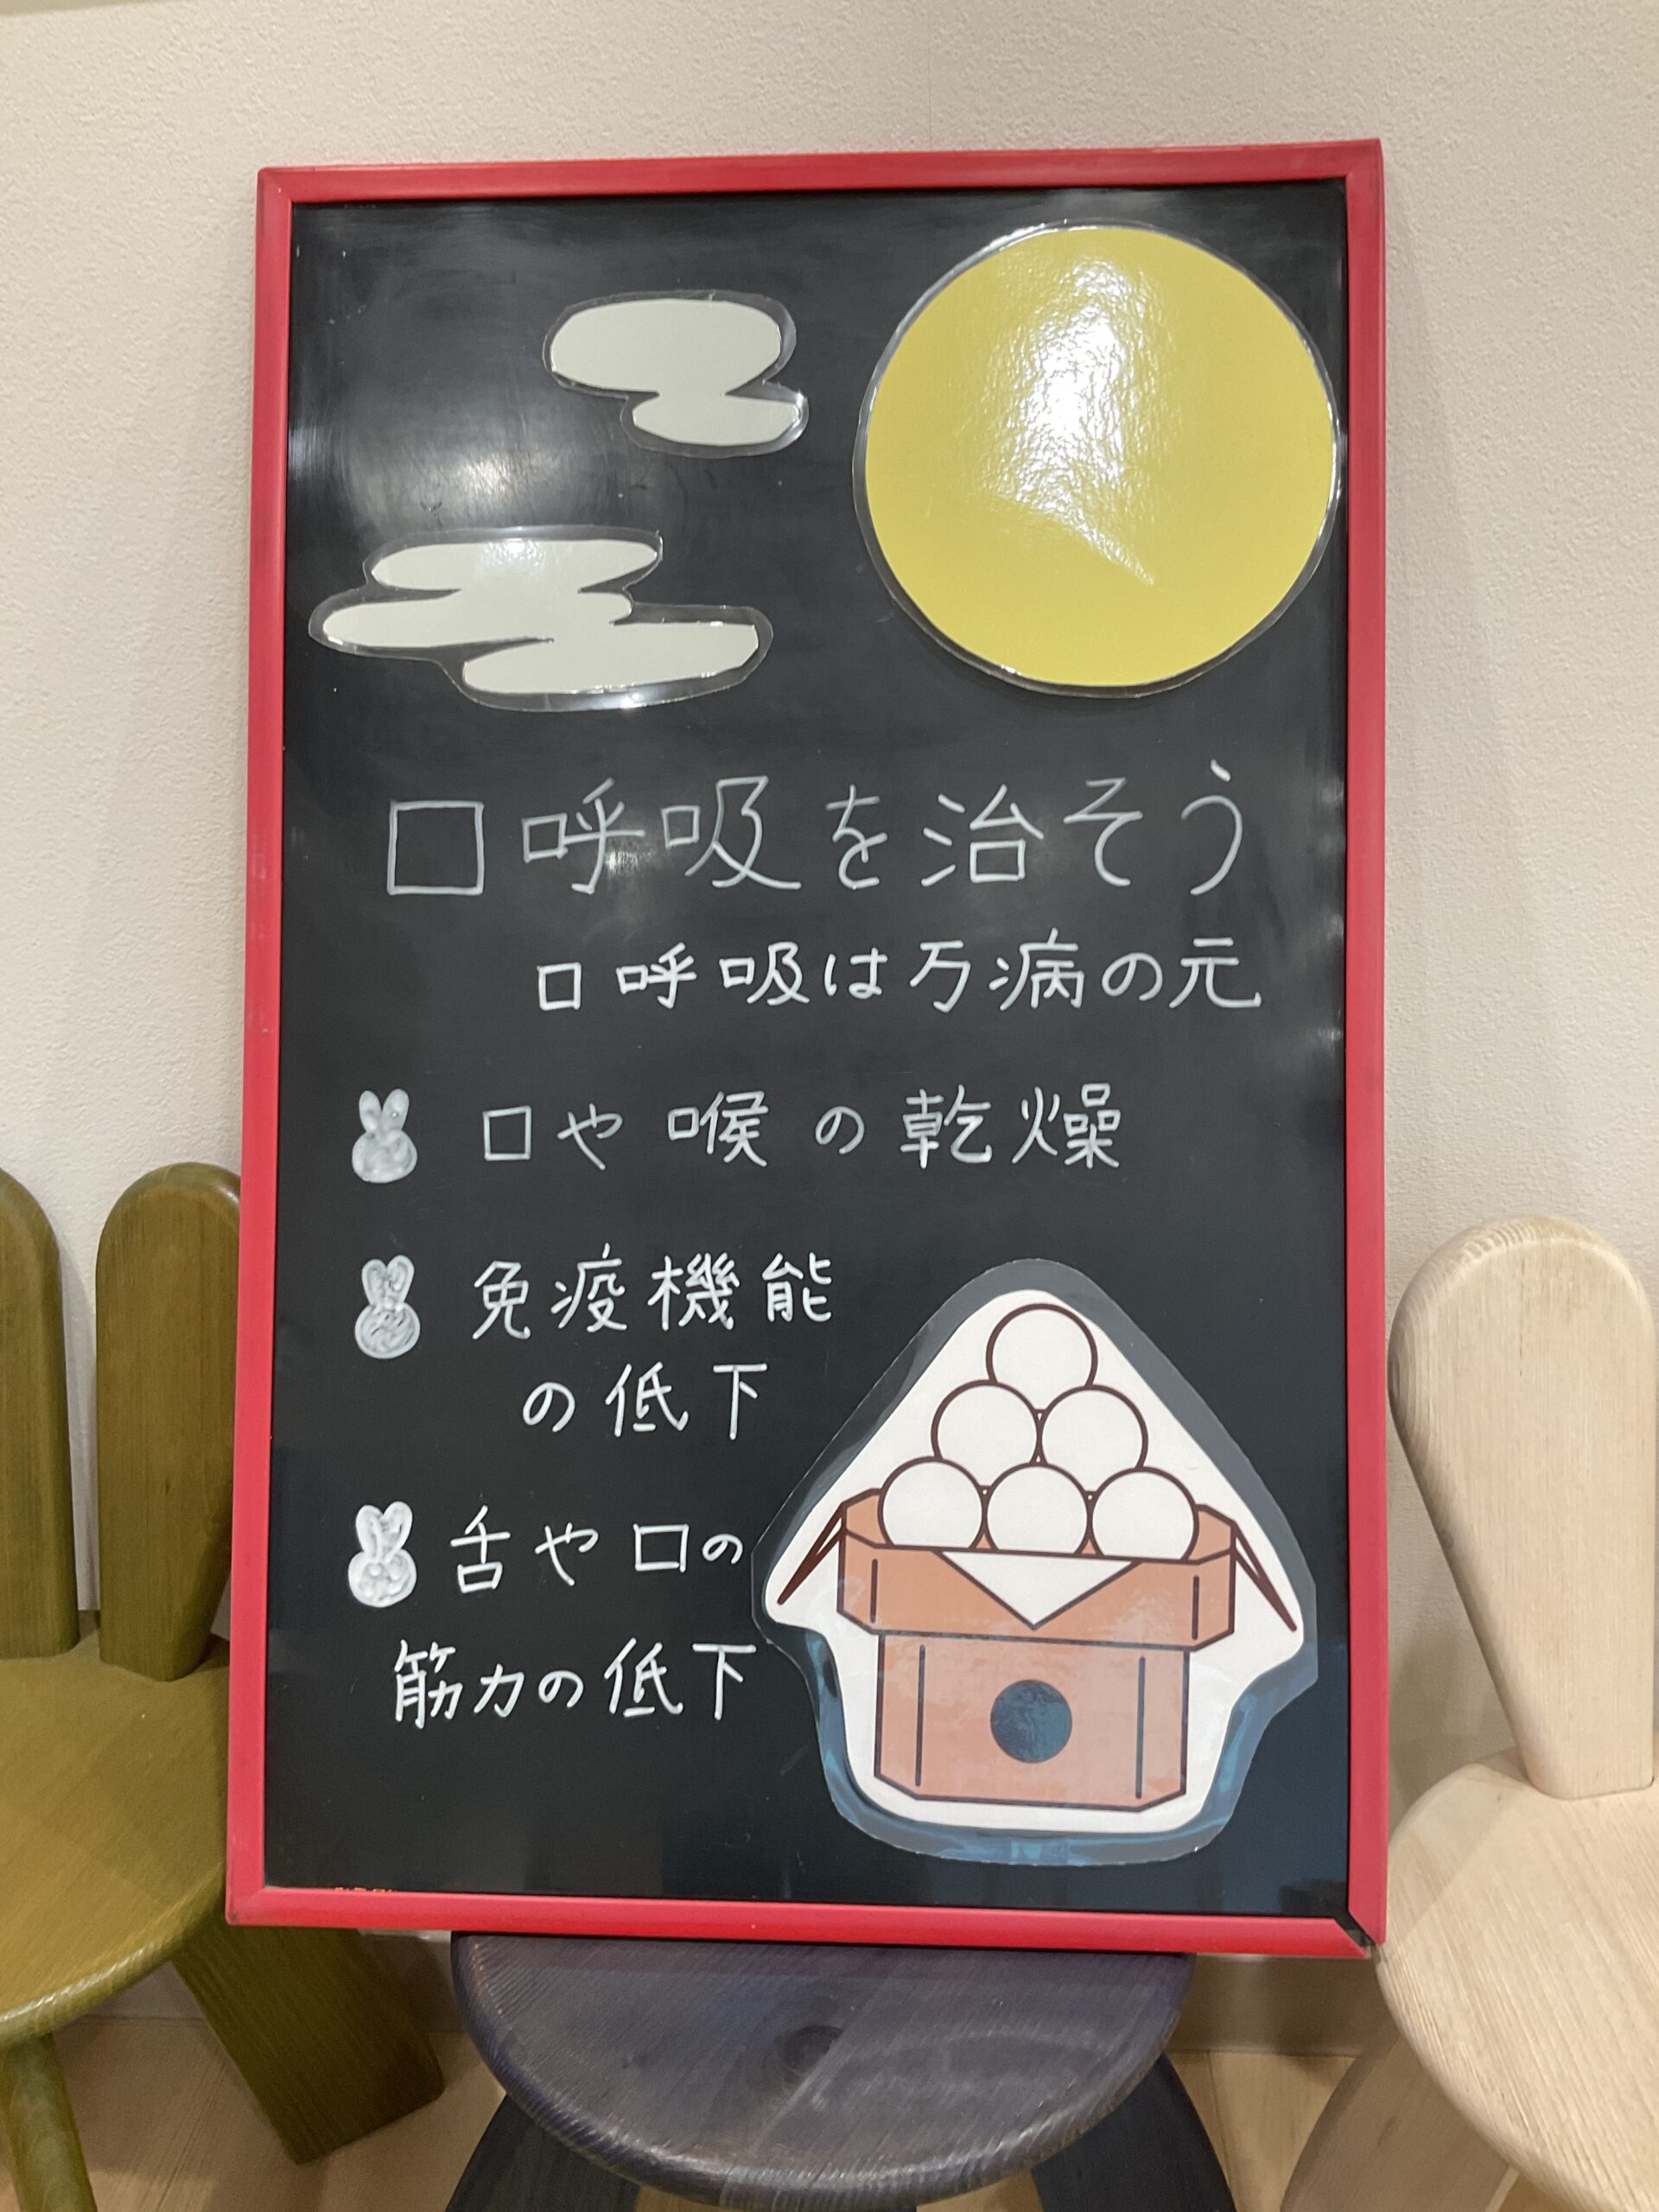 口呼吸を治そう
口呼吸は万病の元
口や喉の乾燥
免疫機能
の低下
舌や口の
筋力の低下